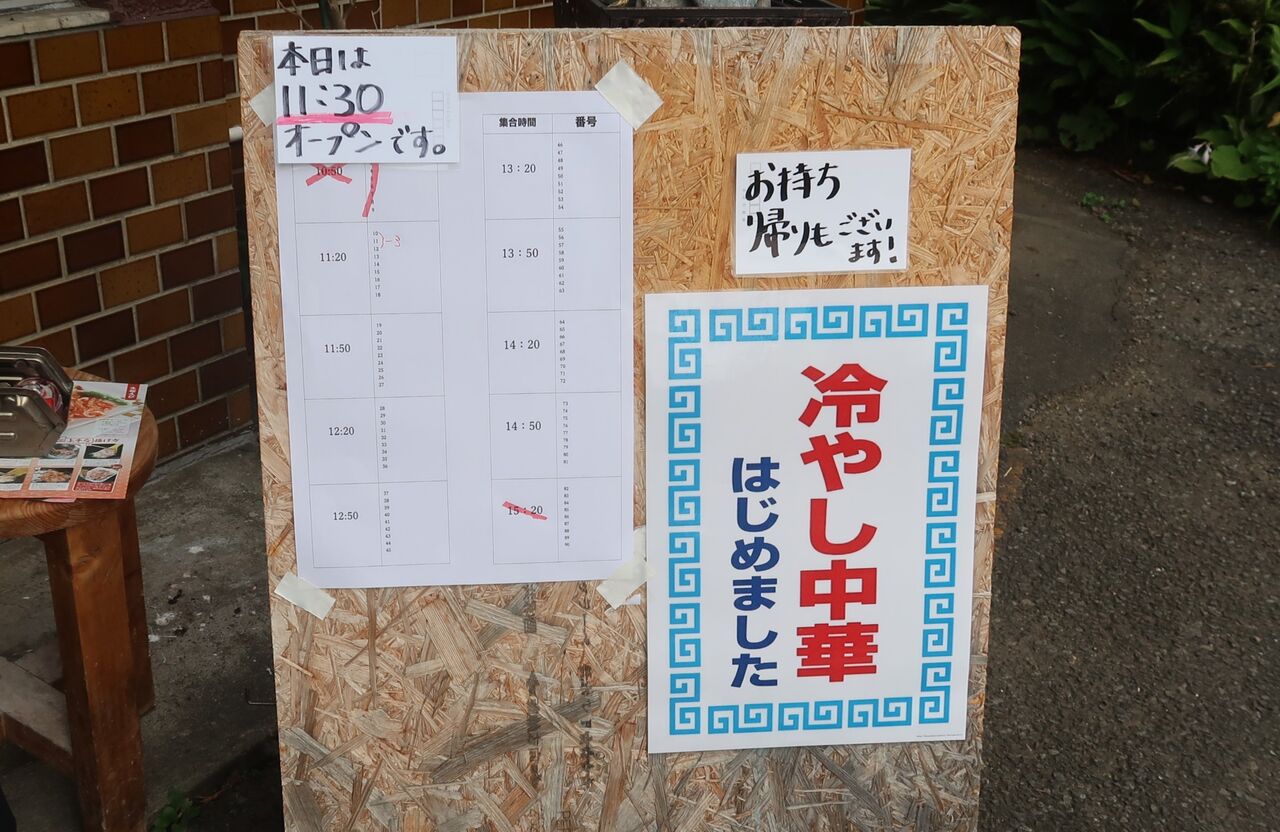 本日は
11:30
オープンです。
10:50
11:20
10
11
12
13
14
15
16
17
18
11:50
19
20
21
22
23
24
25
26
27
12:20
28
29
30
31
32
33
34
35
36
12:50
37
38
39
40
41
42
43
44
45
集合時間 番号
13：20
46
47
48
49
50
51
52
53
54
13：50
55
56
57
58
59
60
61
62
63
14：20
64
65
66
67
68
69
70
71
72
14：50
73
74
75
76
77
78
79
80
81
15：20
82
83
84
85
86
87
88
89
90
お持ち
帰りもござい
ます!
冷やし中華
はじめました